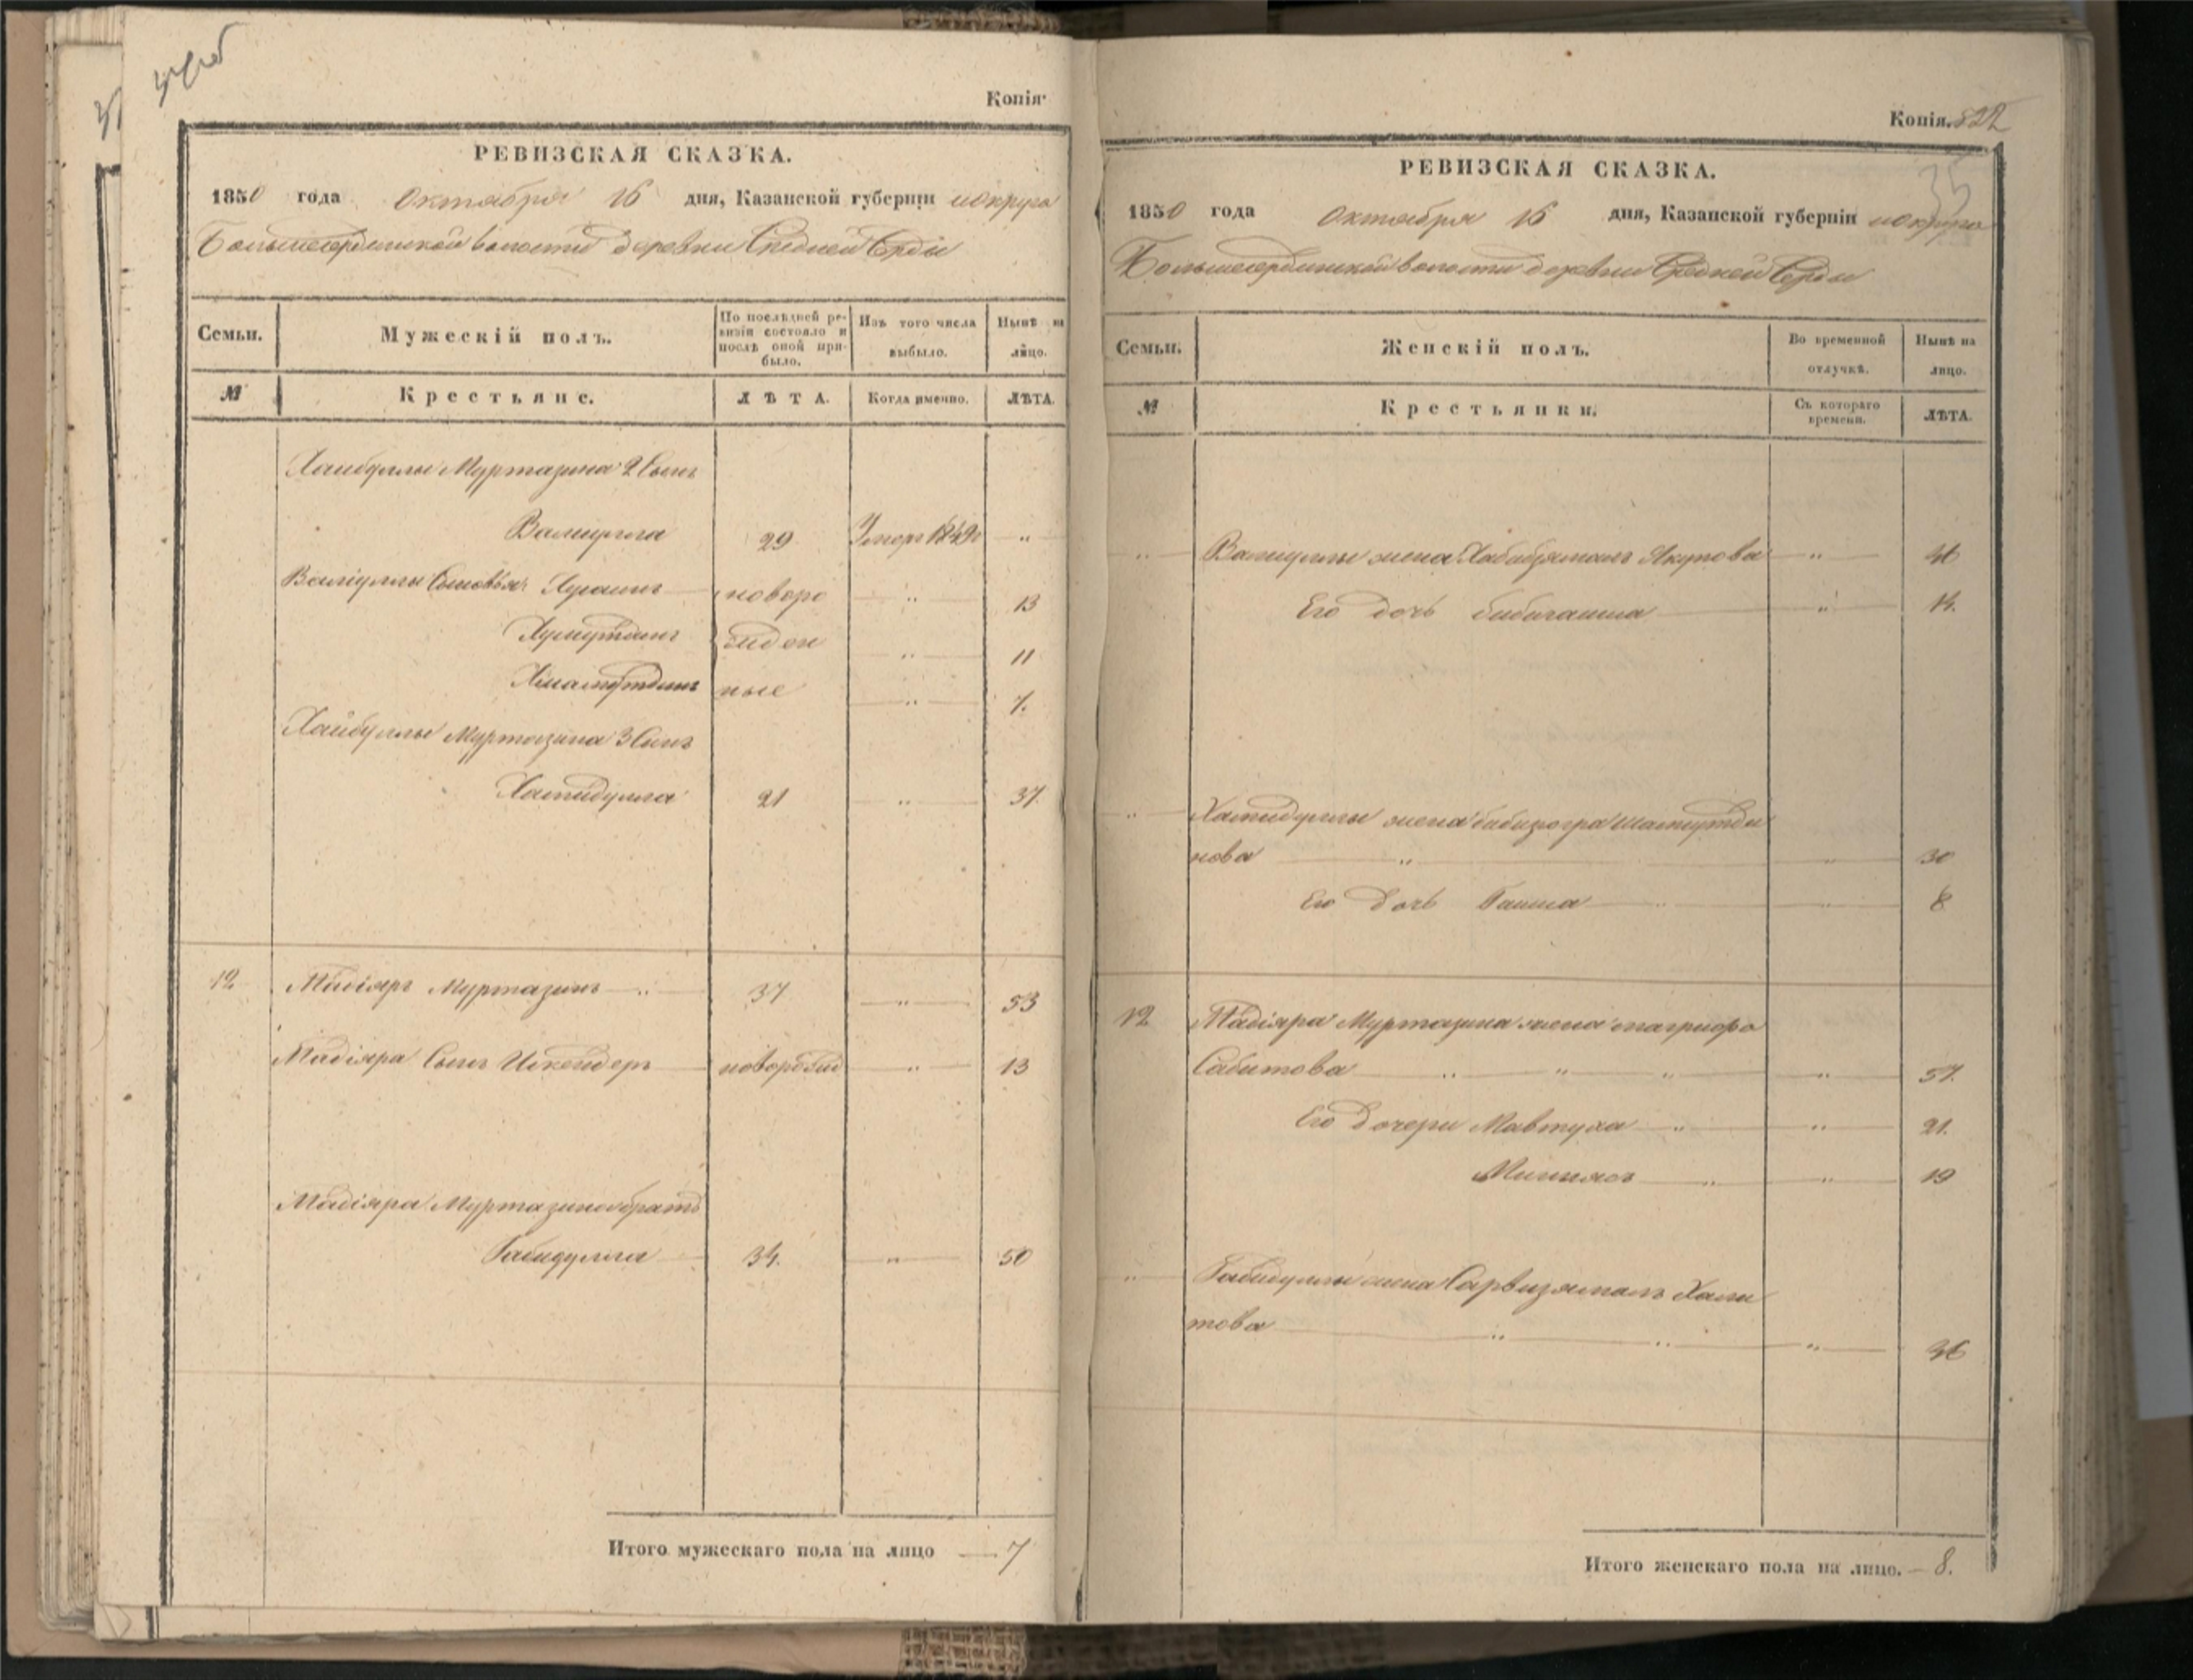 Копія.
РЕВИЗСКАЯ СКАЗКА.
1850 года октября 16 дня, Казанской губерніи и округа
Большесердинской волости деревни Средней Серды
Семьи. Мужескій полъ. По послѣдней ревизіи состояло и послѣ оной прибыло. Изъ того числа выбыло. Нынѣ на лицо.
№ Крестьяне. ЛѢТА. Когда именно. ЛѢТА.
Хайбуллы Муртазина 2 Сынъ
Валиулла 29 Умеръ "
Валіуллы Сыновья новоро " 13
жден " 11
ные " 7.
Хайбуллы Муртазина 3 Сынъ
Хамидулла 21 " 37.
12 Мадіяръ Муртазинъ " 37 " 53
Мадіяра Сынъ Искендеръ новорожд " 13
Мадіяра Муртазина братъ
Габидулла 34. " 50
Итого мужескаго пола на лицо — 7
Копія. 822
35
РЕВИЗСКАЯ СКАЗКА.
1850 года октября 16 дня, Казанской губерніи и округа
Большесердинской волости деревни Средней Серды
Семьи. Женскій полъ. Во временной отлучкѣ. Нынѣ на лицо.
№ Крестьянки. Съ котораго времени. ЛѢТА.
" Валиуллы жена Якупова "
Его дочь Бибигайша "
" Хамидуллы жена
нова " " 30
Его дочь Гайша " " 8
12 Мадіяра Муртазина жена
Сабитова " " " " 57.
Его дочери Мавтуха " " 21.
" " 19
" Габидуллы жена Сарвизямалъ Хали
това " " " 36
Итого женскаго пола на лицо. — 8.